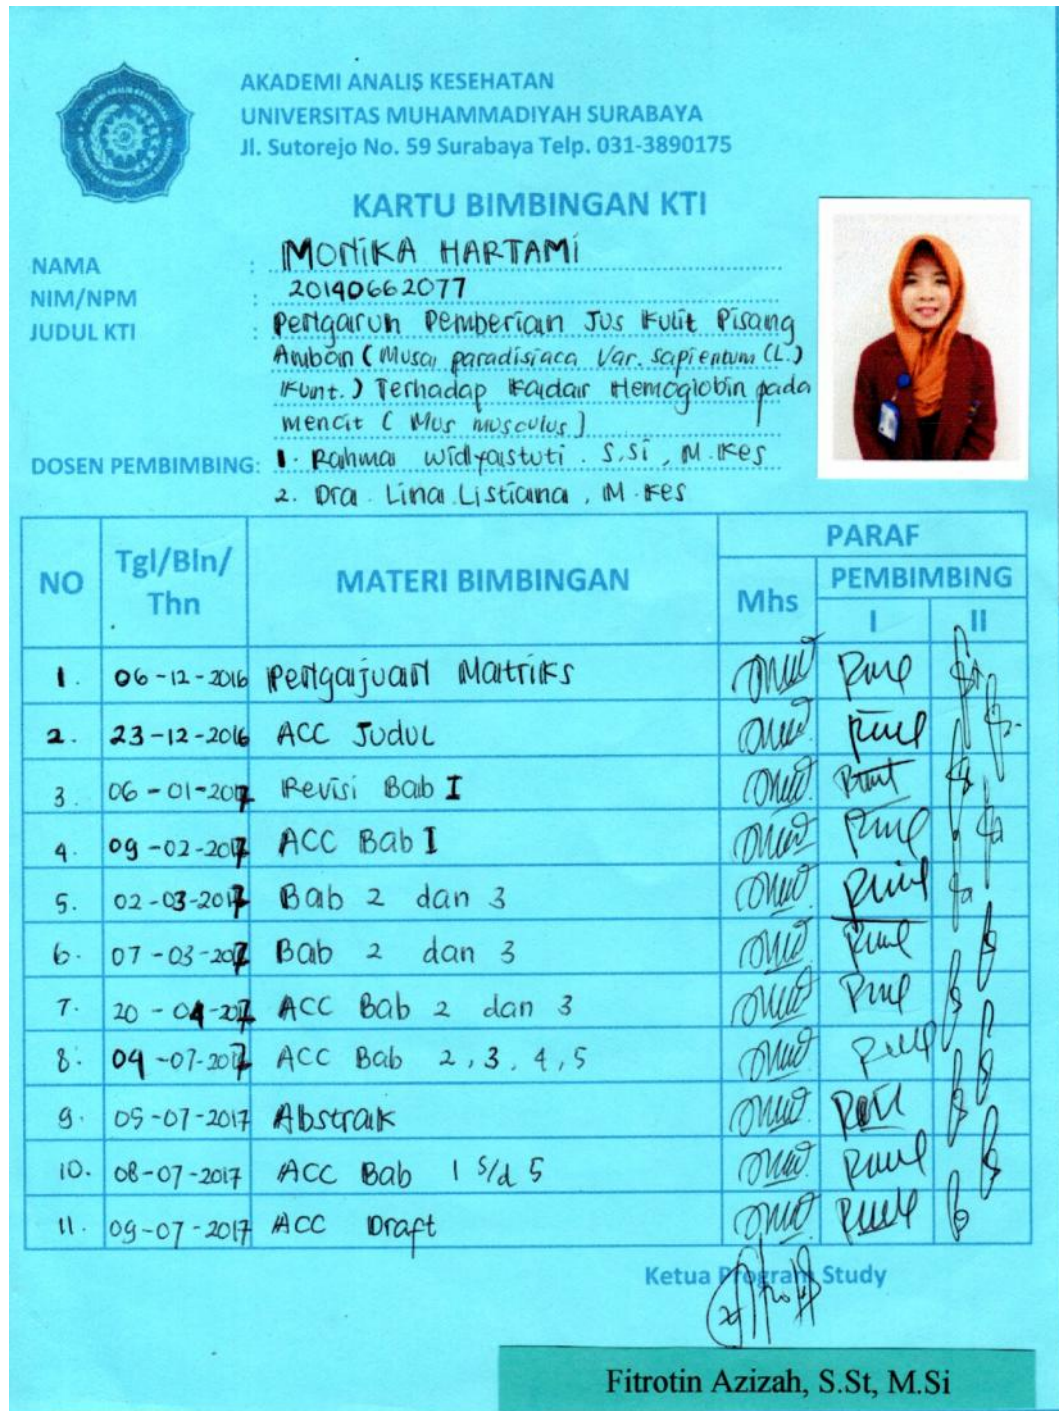 AKADEMI ANALIS KESEHATAN
UNIVERSITAS MUHAMMADIYAH SURABAYA
Jl. Sutorejo No. 59 Surabaya Telp. 031-3890175
KARTU BIMBINGAN KTI
NAMA : MONIKA HARTAMI
NIM/NPM : 20140662077
JUDUL KTI : Pengaruh Pemberian Jus Kulit Pisang
Ambon (Musa paradisiaca Var. sapientum (L.)
Kunt.) Terhadap Kadar Hemoglobin pada
mencit (Mus musculus)
DOSEN PEMBIMBING: 1. Rahma Widyastuti . S.Si , M.Kes
2. Dra. Lina Listiana , M.Kes
NO Tgl/Bln/Thn MATERI BIMBINGAN PARAF
Mhs PEMBIMBING
I II
1. 06-12-2016 Pengajuan Matriks
2. 23-12-2016 ACC Judul
3. 06-01-2017 Revisi Bab I
4. 09-02-2017 ACC Bab I
5. 02-03-2017 Bab 2 dan 3
6. 07-03-2017 Bab 2 dan 3
7. 20-04-2017 ACC Bab 2 dan 3
8. 04-07-2017 ACC Bab 2, 3, 4, 5
9. 05-07-2017 Abstrak
10. 08-07-2017 ACC Bab 1 s/d 5
11. 09-07-2017 ACC Draft
Ketua Program Study
Fitrotin Azizah, S.St, M.Si